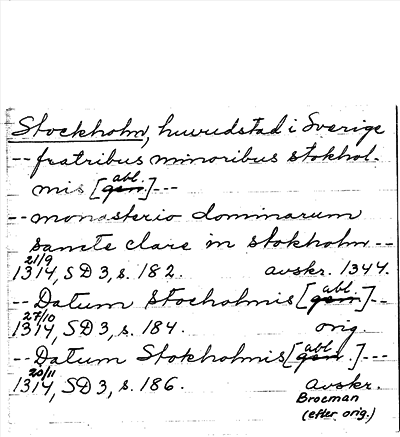 Stockholm, huvudstad i Sverige
-- fratribus minoribus stokhol-
abl.
mis [gen]---
-- monasterio dominarum
sancte clare in stokholm --
21/9
1314, SD 3, s. 182. avskr. 1344.
abl.
-- Datum stocholmis [gen]--
27/10
1314, SD 3, s. 184. orig.
abl.
-- Datum Stokholmis [gen.]---
20/11
1314, SD 3, s. 186. Avskr.
Broeman
(efter orig.)